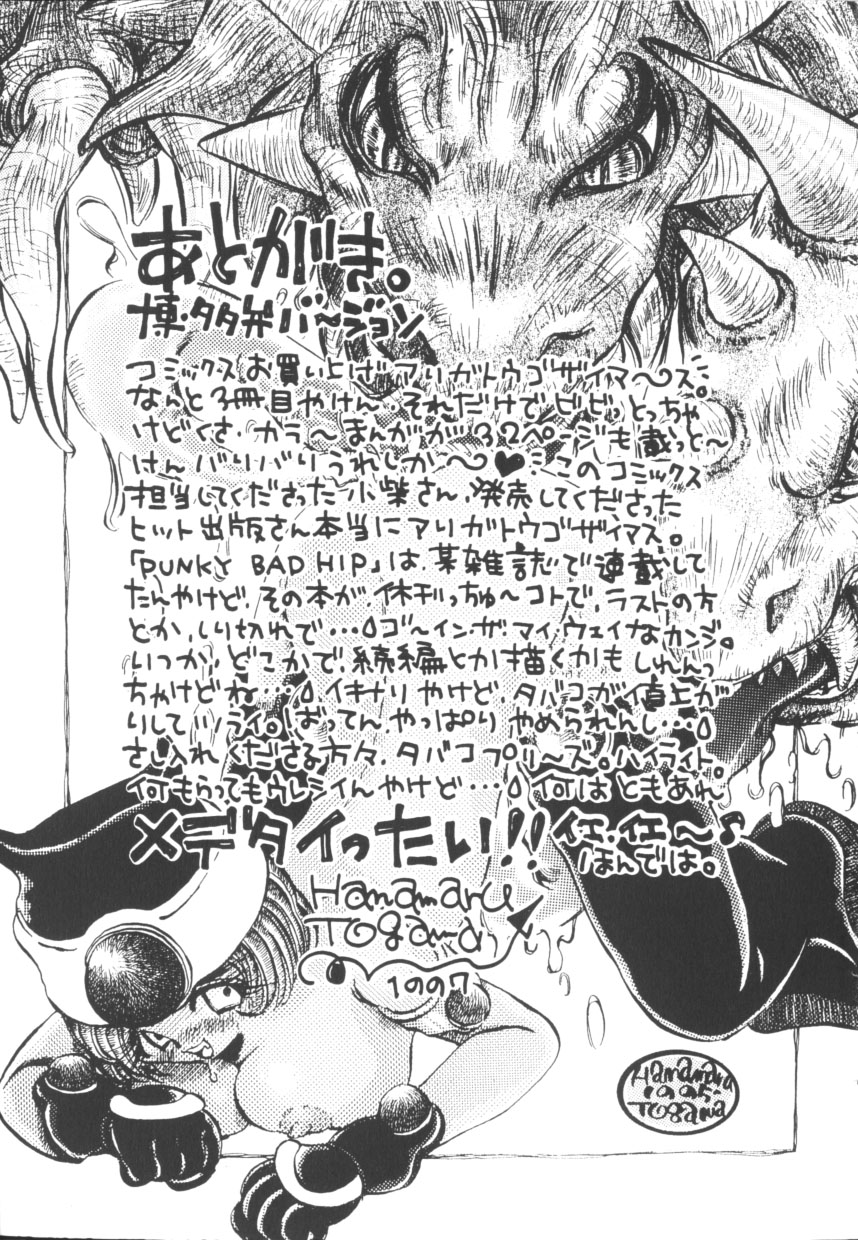 あとがき。
博・タタ弁バ〜ジョン
コミックスお買い上げアリガトウゴザイマ〜ス。
なんと3冊目やけん、それだけでビビっとっちゃ
けどくさ、カラ〜まんがが32ページも載っと〜
けんバリバリうれしか〜♥このコミックス
担当してくださった小柴さん、発売してくださった
ヒット出版さん本当にアリガトウゴザイマス。
「PUNKY BAD HIP」は、某雑誌で連載して
たんやけど、その本が、休刊っちゅ〜コトで、ラストの方
とか、しり切れで…ゴ〜イン・ザ・マイ・ウェイなカンジ。
いつか、どこかで、続編とか描くかもしれんっ
ちゃけどね…イキナリやけど、タバコが値上が
りしてツライ。ばってん、やっぱりやめられんし…
さし入れくださる方々、タバコプリ〜ズ。ハイライト。
何もらってもウレシイんやけど…何はともあれ
メデタイったい!!イエ・イエ〜♪
ほんでは。
Hanamaru
TOgama
1997
Hanamaru
1995
TOgama